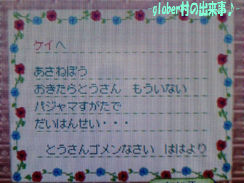 glober村の出来事♪~
ケイへ
あさねぼう
おきたらとうさん　もういない
パジャマすがたで
だいはんせい・・・
とうさんゴメンなさい　ははより